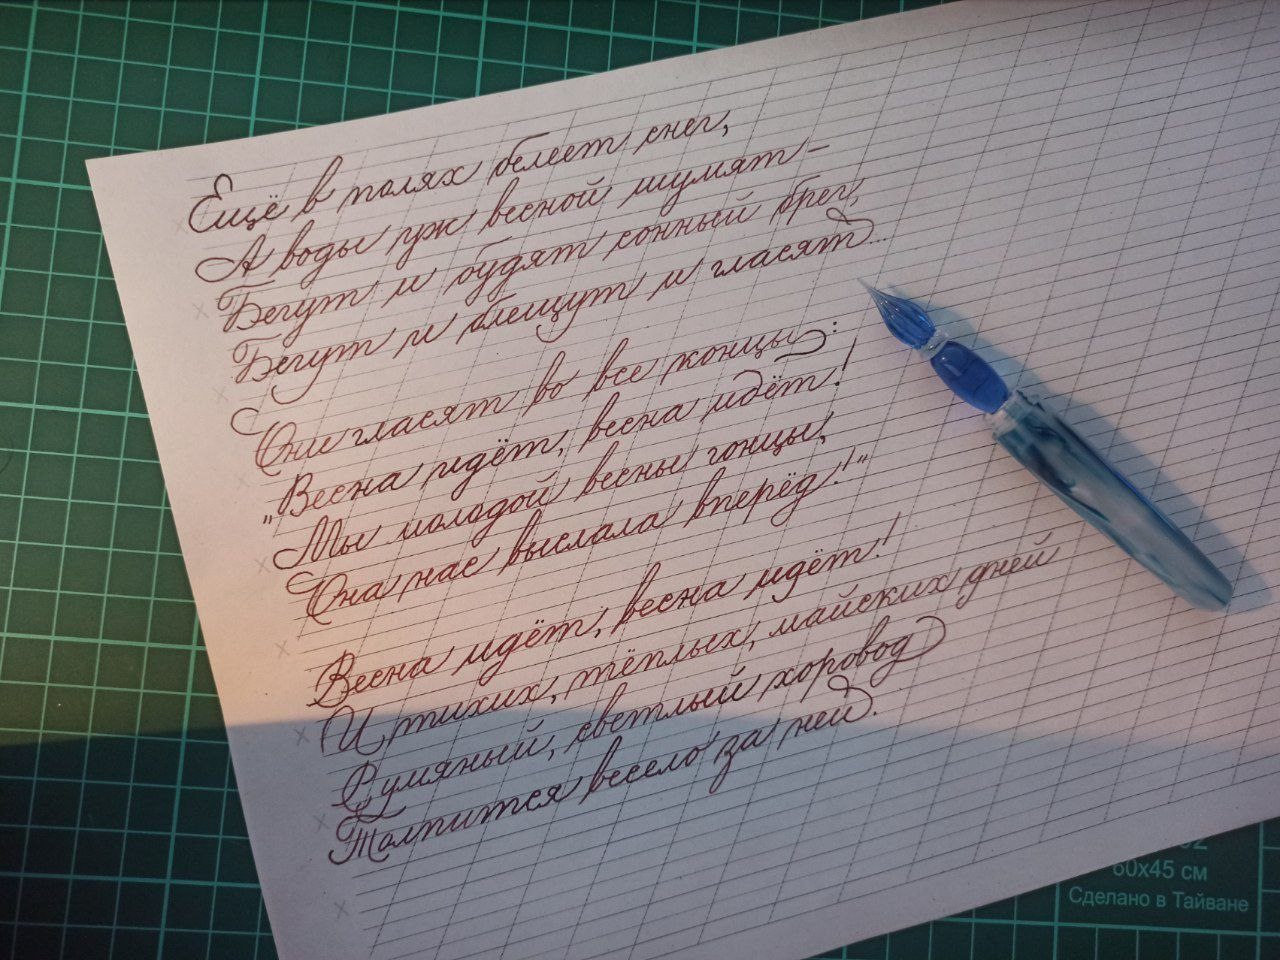 Ещё в полях белеет снег,
А воды уж весной шумят –
Бегут и будят сонный брег,
Бегут и блещут и гласят...
Они гласят во все концы:
„Весна идёт, весна идёт!
Мы молодой весны гонцы,
Она нас выслала вперёд!"
Весна идёт, весна идёт!
И тихих, тёплых, майских дней
Румяный, светлый хоровод
Толпится весело за ней.
60x45 см
Сделано в Тайване